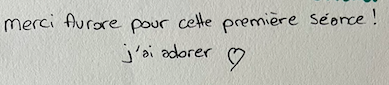 merci Aurore pour cette première séance !
j'ai adorer ♡